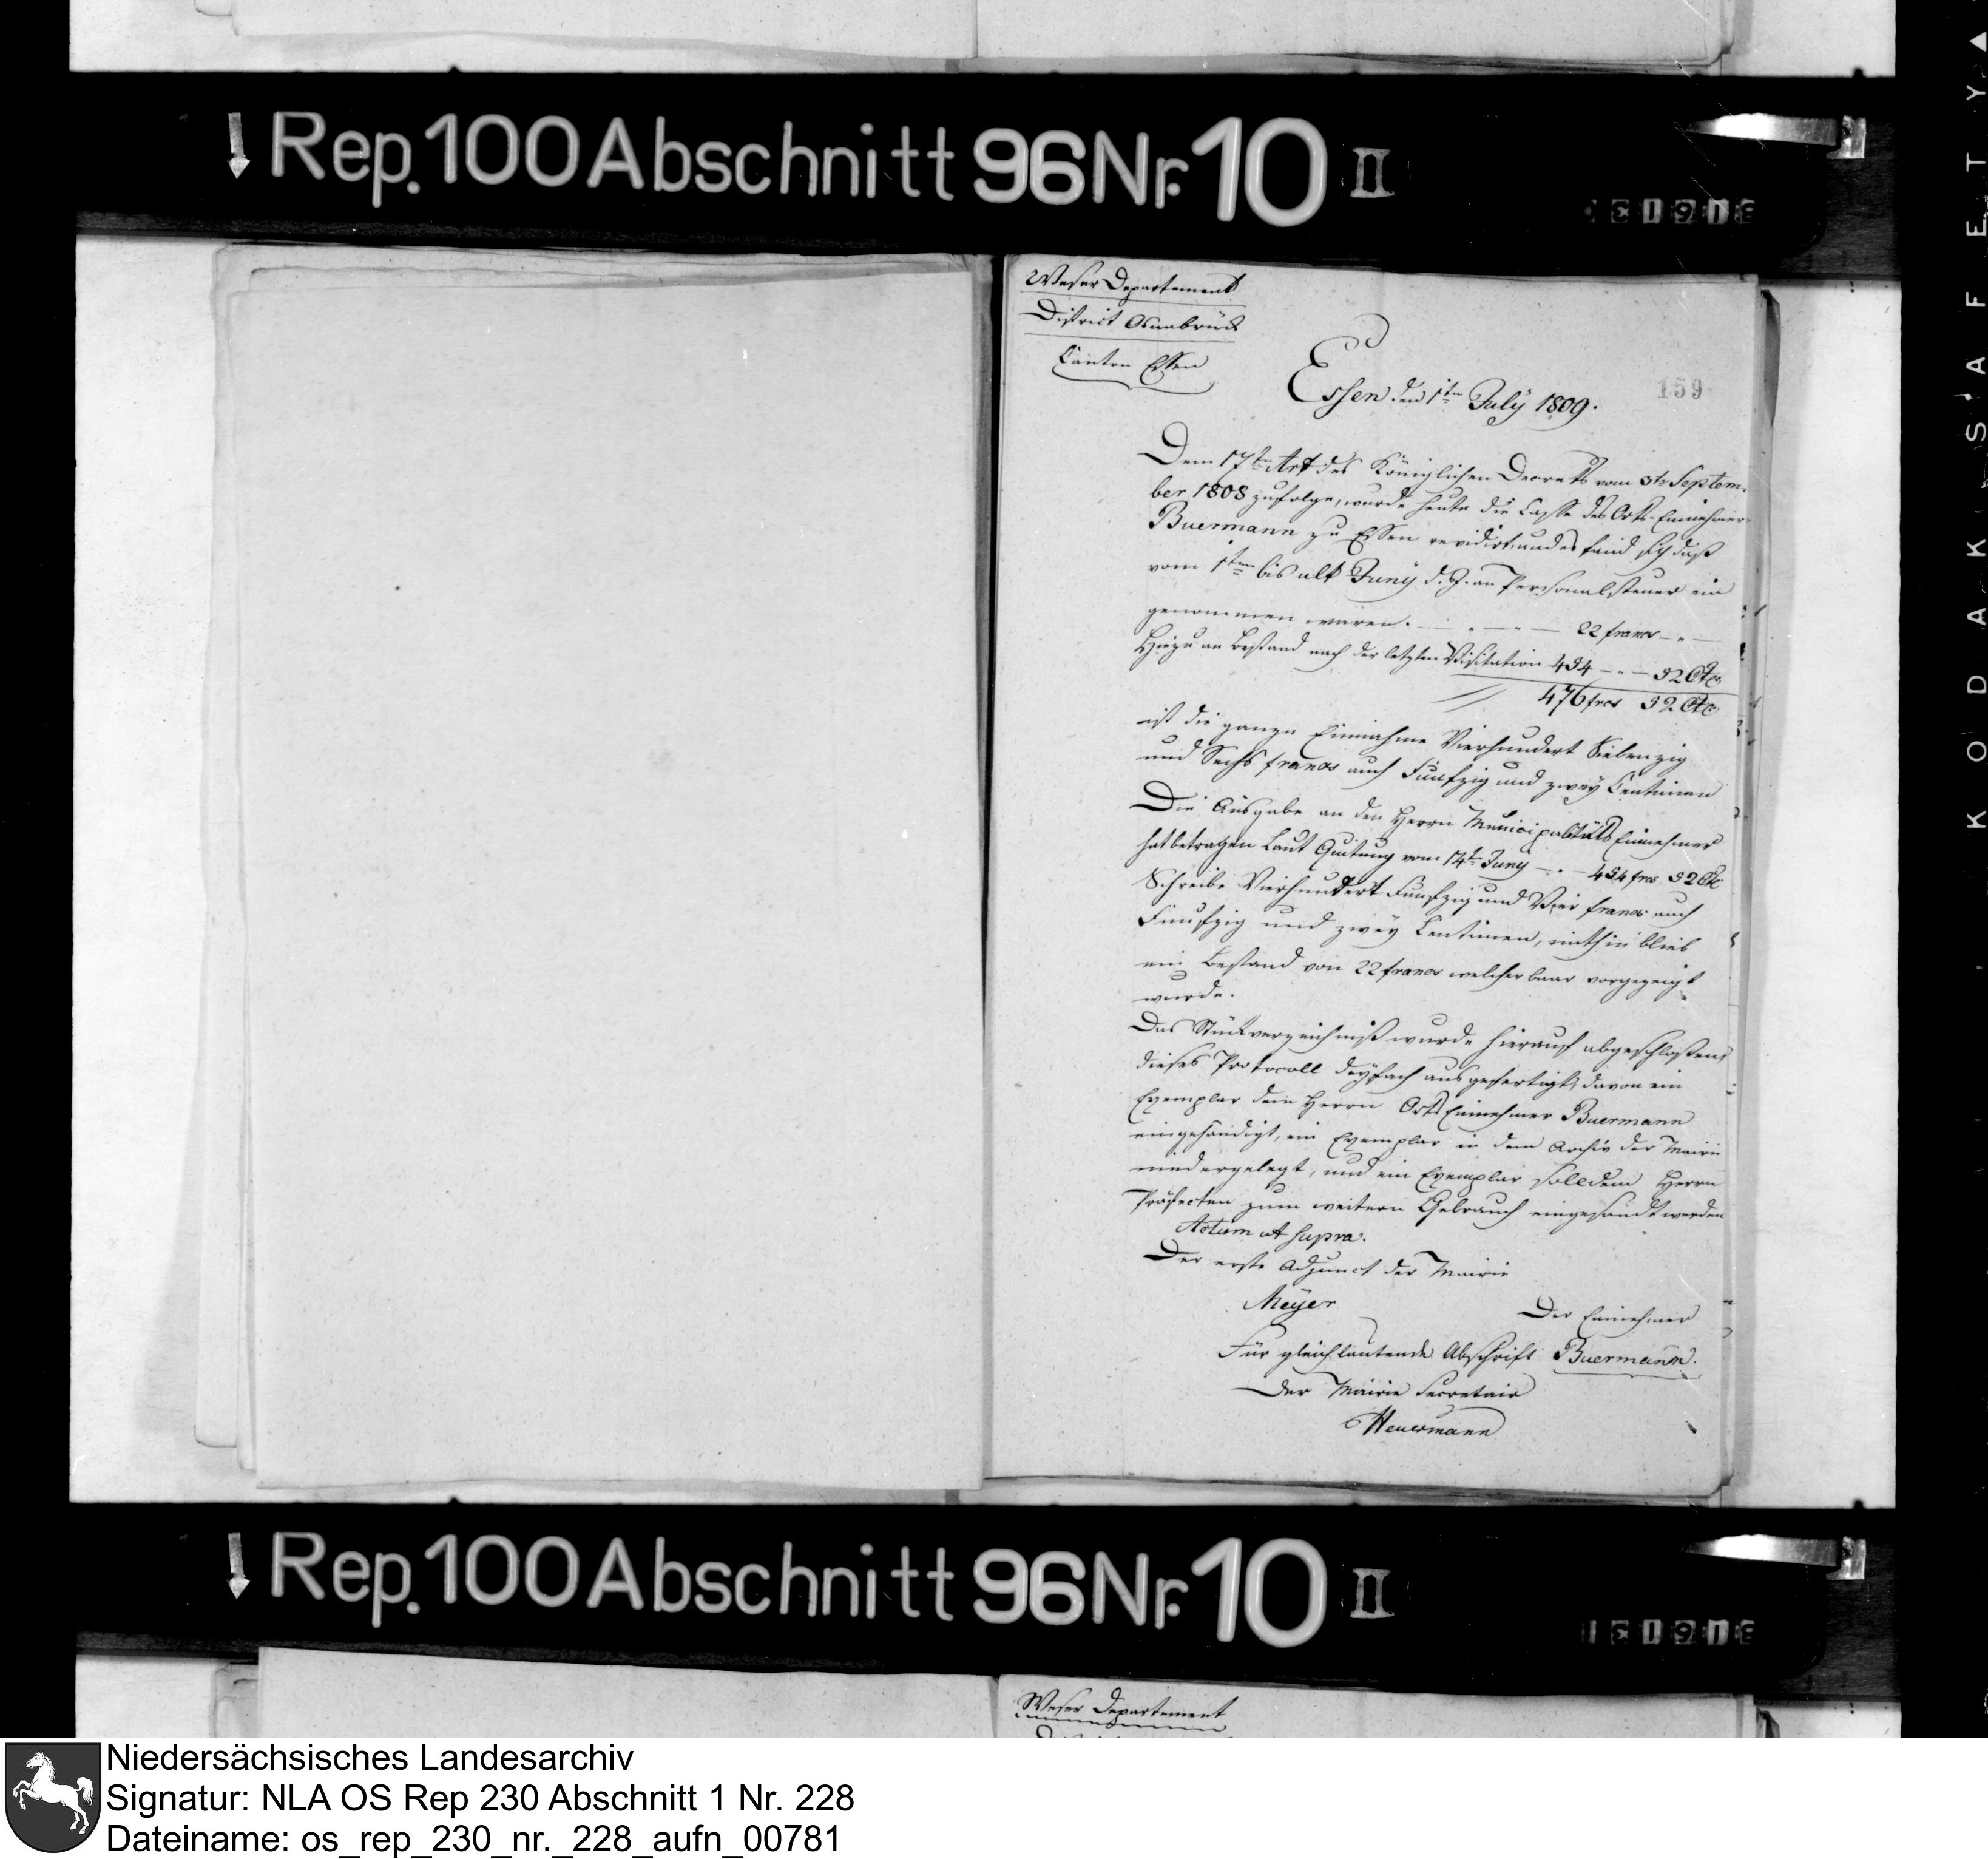 Rep. 100 Abschnitt 96 Nr. 10 II
Weser Departement
District Osnabrück
Canton Essen
Essen den 1ten July 1809.
159
Dem 17ten Art des Königlichen Decrets vom 3ten Septem-
ber 1808 zufolge, wurde heute die Casse des Orts-Einnehmer
Buermann zu Essen revidirt und es fand sich daß
vom 1ten bis ult Juny d. J. an Personalsteuer ein
genommen waren. 22 francs
Hiezu an Bestand nach der letzten Visitation 454 — 52 Ct
476 frcs 52 Ct
ist die ganze Einnahme Vierhundert Siebenzig
und Sechs francs auch Fünfzig und zwey Centimen
Die Ausgabe an den Herrn Municipalitäts Einnehmer
hat betragen Laut Quitung vom 14ten Juny — 454 frcs 52 Ct
Schreibe Vierhundert Fünfzig und Vier francs auch
Fünfzig und zwey Centimen, mithin blieb
ein Bestand von 22 francs welcher baar vorgezeigt
wurde.
Das Stückverzeichniß wurde hierauf abgeschloßen,
dieses Protocoll dreyfach ausgefertigt, davon ein
Exemplar dem Herrn Orts Einnehmer Buermann
eingehändigt, ein Exemplar in dem Archiv der Mairie
niedergelegt, und ein Exemplar soll dem Herrn
Präfecten zum weitern Gebrauch eingesandt werden
Actum ut supra.
Der erste Adjunct der Mairie
Meyer
Der Einnehmer
Für gleichlautende Abschrift Buermann.
Der Mairie Secretair
Heuermann
Rep. 100 Abschnitt 96 Nr. 10 II
Weser Departement
KODAK SAFETY
Niedersächsisches Landesarchiv
Signatur: NLA OS Rep 230 Abschnitt 1 Nr. 228
Dateiname: os_rep_230_nr._228_aufn_00781